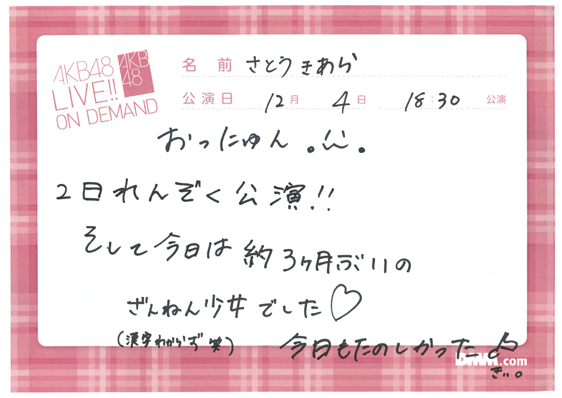 AKB48
LIVE!!
ON DEMAND
AKB
48
名前 さとうきあら
公演日 12月 4日 18:30 公演
おっにゅん
2日れんぞく公演!!
そして今日は約3ヶ月ぶりの
ざんねん少女でした♡
(漢字わからず笑)
今日もたのしかった
DMM.com